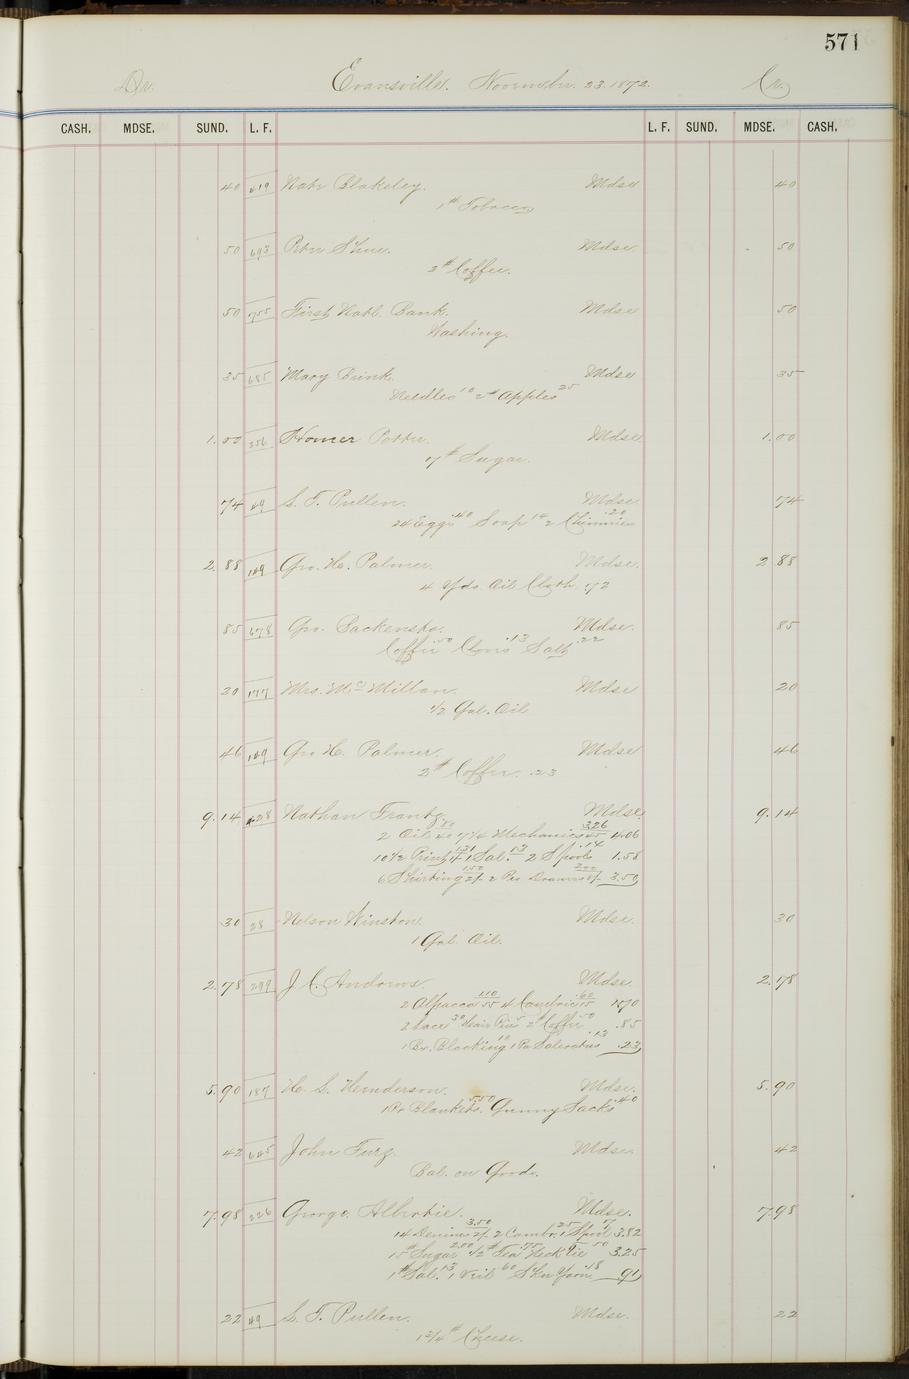 571
Dr. Evansville. November. 23. 1872. Cr.
CASH. MDSE. SUND. L. F. L. F. SUND. MDSE. CASH.
40 419 Blakeley. Mdse 40
1# Tobacco
50 693 Peter Mdse 50
2# Coffee.
50 755 First Natl. Bank. Mdse 50
Washing.
35 685 Mary Brink. Mdse 35
Needles 10 2# Apples 25
1.00 356 Homer Potter. Mdse 1.00
7# Sugar.
74 49 S. T. Pullen. Mdse 74
24 Eggs .40 Soap 14 2 Chimnies .20
2.88 109 Geo. H. Palmer. Mdse. 2 88
4 Yds. Oil Cloth. .72
85 678 Geo. Backensto. Mdse. 85
Coffee .50 .13 Salt .22
20 177 Mrs. Mc Millan. Mdse 20
1/2 Gal. Oil
46 109 Geo H. Palmer. Mdse 46
2# Coffee. .23
9.14 428 Nathan Frantz. Mdse. 9.14
2 Oil 7 1/4 Mechanics 3.26 4.06
10 1/2 Print 1.31 1 Sal. 13 2 Spools .14 1.58
6 Shirting 1.50 2/- 2 Prs Drawers 2.00 8/- 3.50
30 28 Nelson Winston. Mdse. 30
1 Gal. Oil.
2.78 299 J. C. Andrews. Mdse. 2.78
2 Alpacca 1.10 55 4 Cambric .60 15 1.70
2 Lace 30 Hair Pins 5 2# Coffee .50 .85
1 Bx. Blacking 10 1 Pa Saleratus .13 .23
5.90 187 H. S. Henderson. Mdse. 5.90
1 Pr Blankets. 5.50 Gunny Sacks .40
42 645 John Furg. Mdse. 42
Bal. on Goods.
7.98 226 George. Albertie. Mdse. 7.98
14 Denims 3.50 2/- 2 Cambr. .25 1 Spool 7 3.82
15# Sugar 2.00 1/2# Tea .75 Neck Tie 50 3.25
1# Sal. 13 1 Veil .60 Skn Yarn .18 91
22 49 S. T. Pullen. Mdse. 22
1 2/4# Cheese.